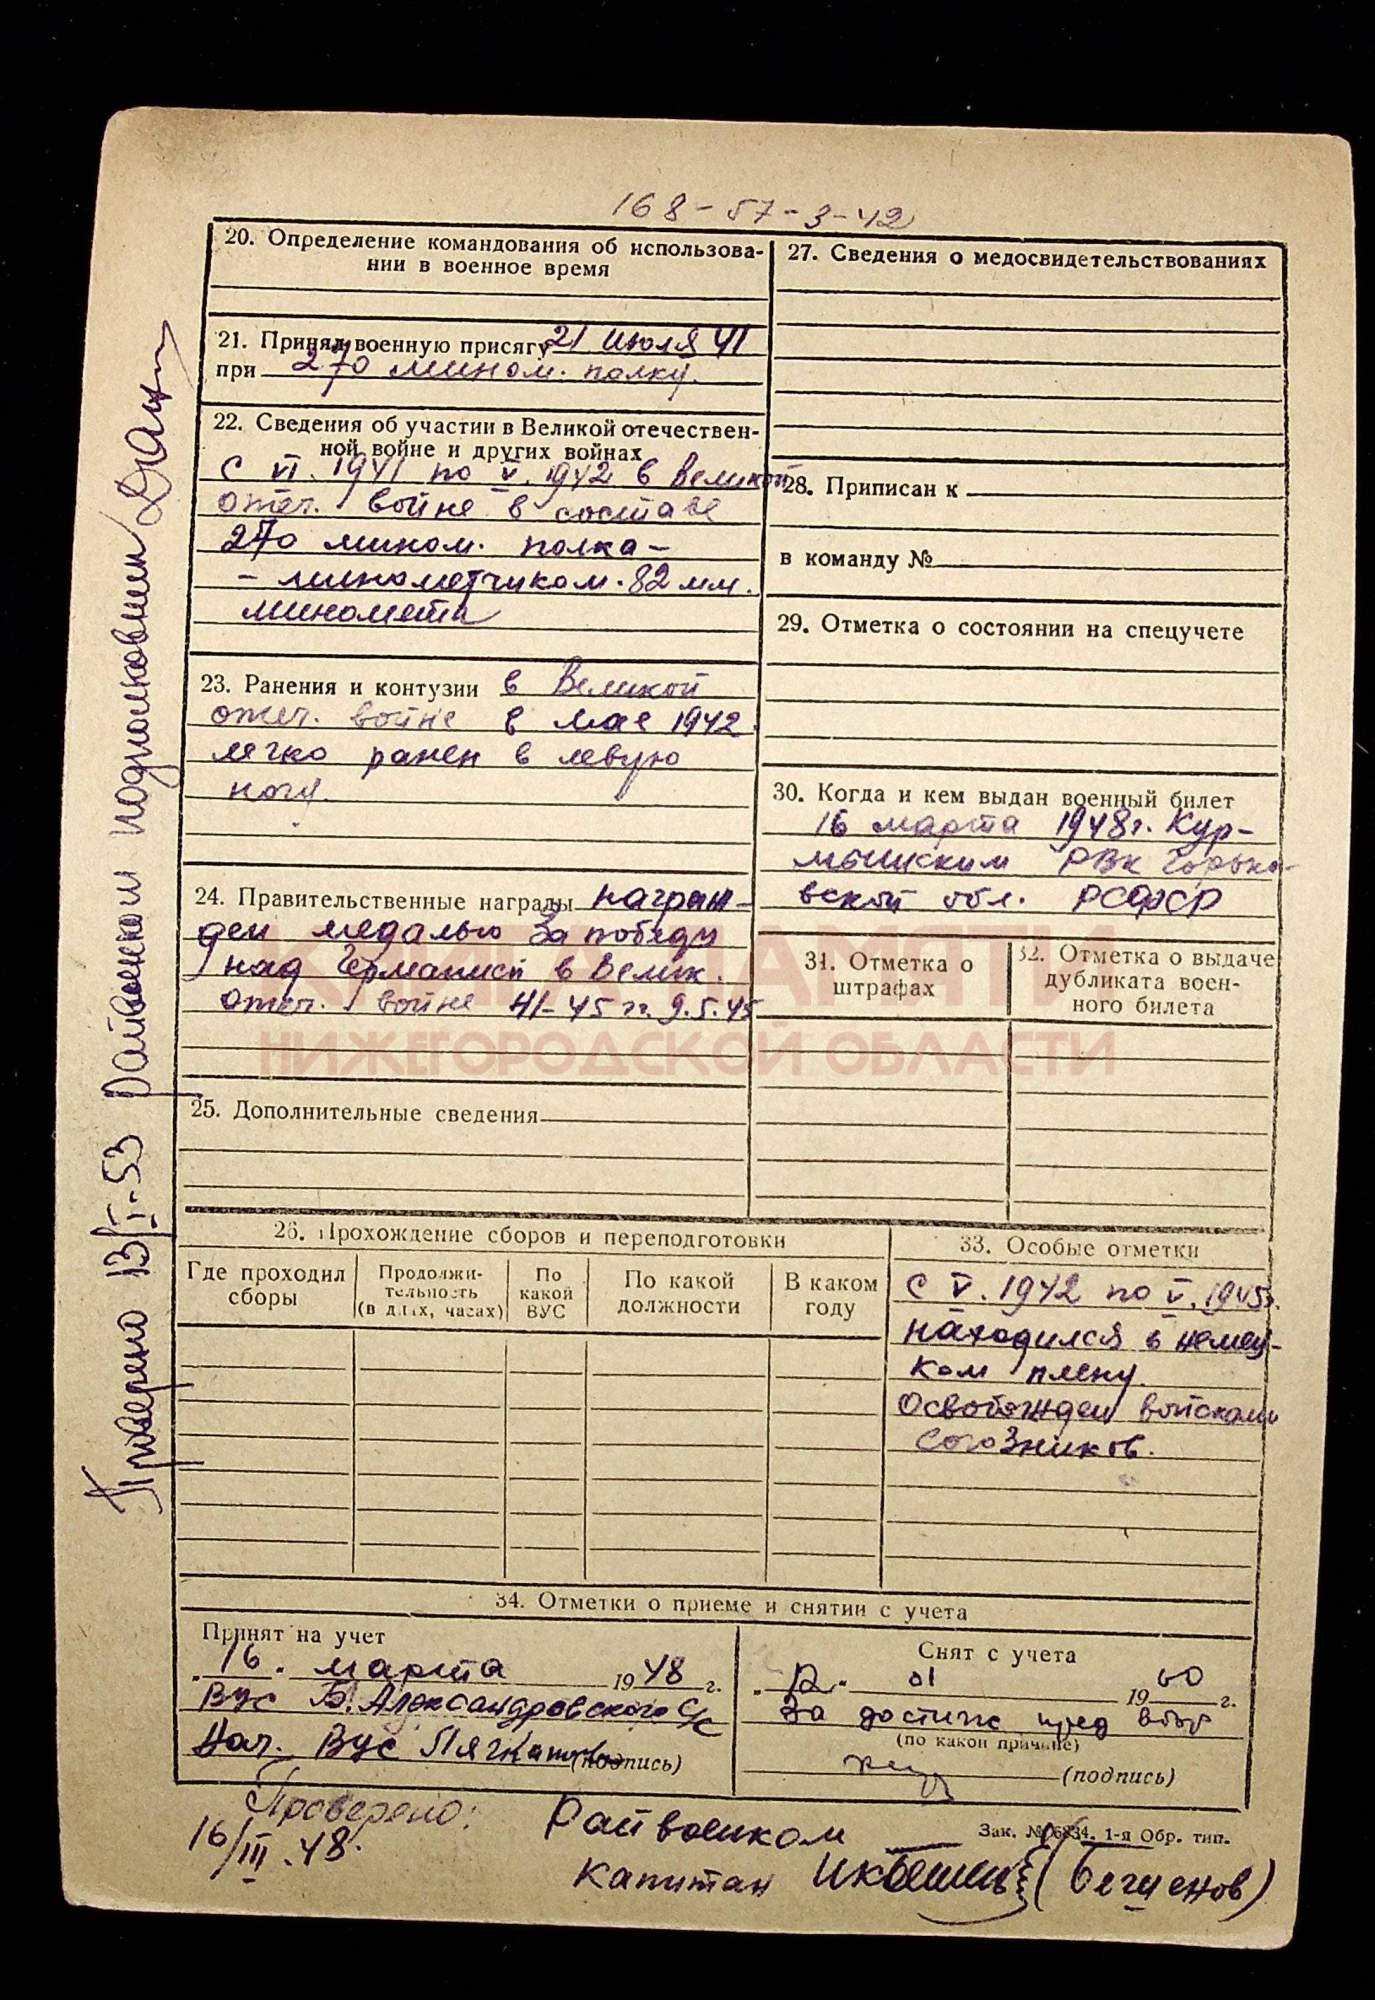 168-57-3-42
20. Определение командования об использова-
нии в военное время
21. Принял военную присягу 21 июля 41
при 270 мином. полку.
22. Сведения об участии в Великой отечествен-
ной войне и других войнах
С VI. 1941 по V. 1942 в Великой
отеч. войне в составе
270 мином. полка –
– минометчиком. 82 мм.
миномета
23. Ранения и контузии в Великой
отеч. войне в мае 1942.
легко ранен в левую
ногу.
24. Правительственные награды награж-
ден медалью За победу
над Германией в Велик.
отеч. войне 41-45 гг. 9.5.45
25. Дополнительные сведения
27. Сведения о медосвидетельствованиях
28. Приписан к
в команду №
29. Отметка о состоянии на спецучете
30. Когда и кем выдан военный билет
16 марта 1948г. Кур-
мышским РВК Горько-
вской обл. РСФСР
31. Отметка о
штрафах
32. Отметка о выдаче
дубликата воен-
ного билета
КНИГА ПАМЯТИ
НИЖЕГОРОДСКОЙ ОБЛАСТИ
26. Прохождение сборов и переподготовки
Где проходил
сборы
Продолжи-
тельность
(в днях, часах)
По
какой
ВУС
По какой
должности
В каком
году
33. Особые отметки
С V. 1942 по V. 1945г.
находился в немец-
ком плену.
Освобожден войсками
союзников.
34. Отметки о приеме и снятии с учета
Принят на учет
"16" марта 1948 г.
Вус Б. Александровского с/с
Нач. Вус
(подпись)
Снят с учета
"12" 01 1960 г.
За достиж пред возр
(по какой причине)
(подпись)
Проверено:
16/III.48.
Райвоенком
капитан
Зак. № 6834. 1-я Обр. тип.
Проверено 13/I-53 Райвоенком подполковник